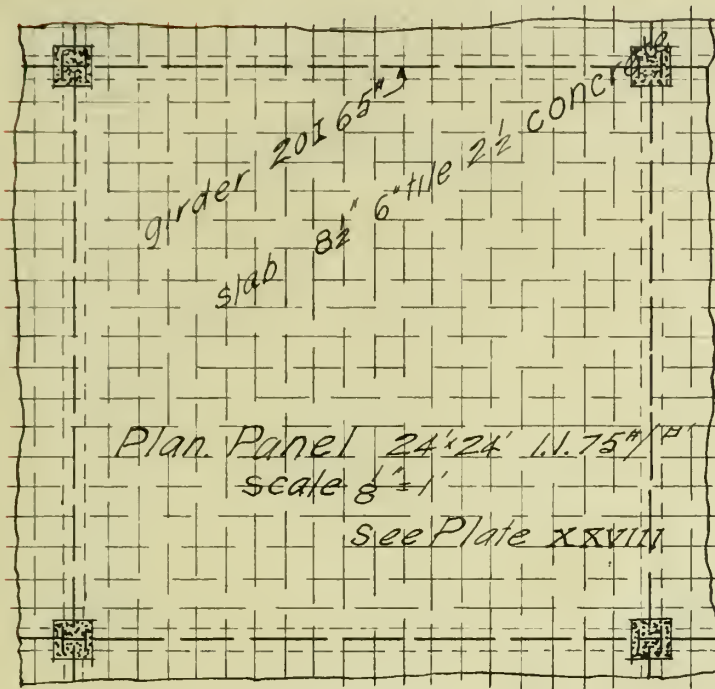 girder 20I 65#
slab 8½" 6" tile 2½ concrete
Plan. Panel 24'x24' l.l. 75#/□'
scale ⅛"=1'
see Plate XXVIII